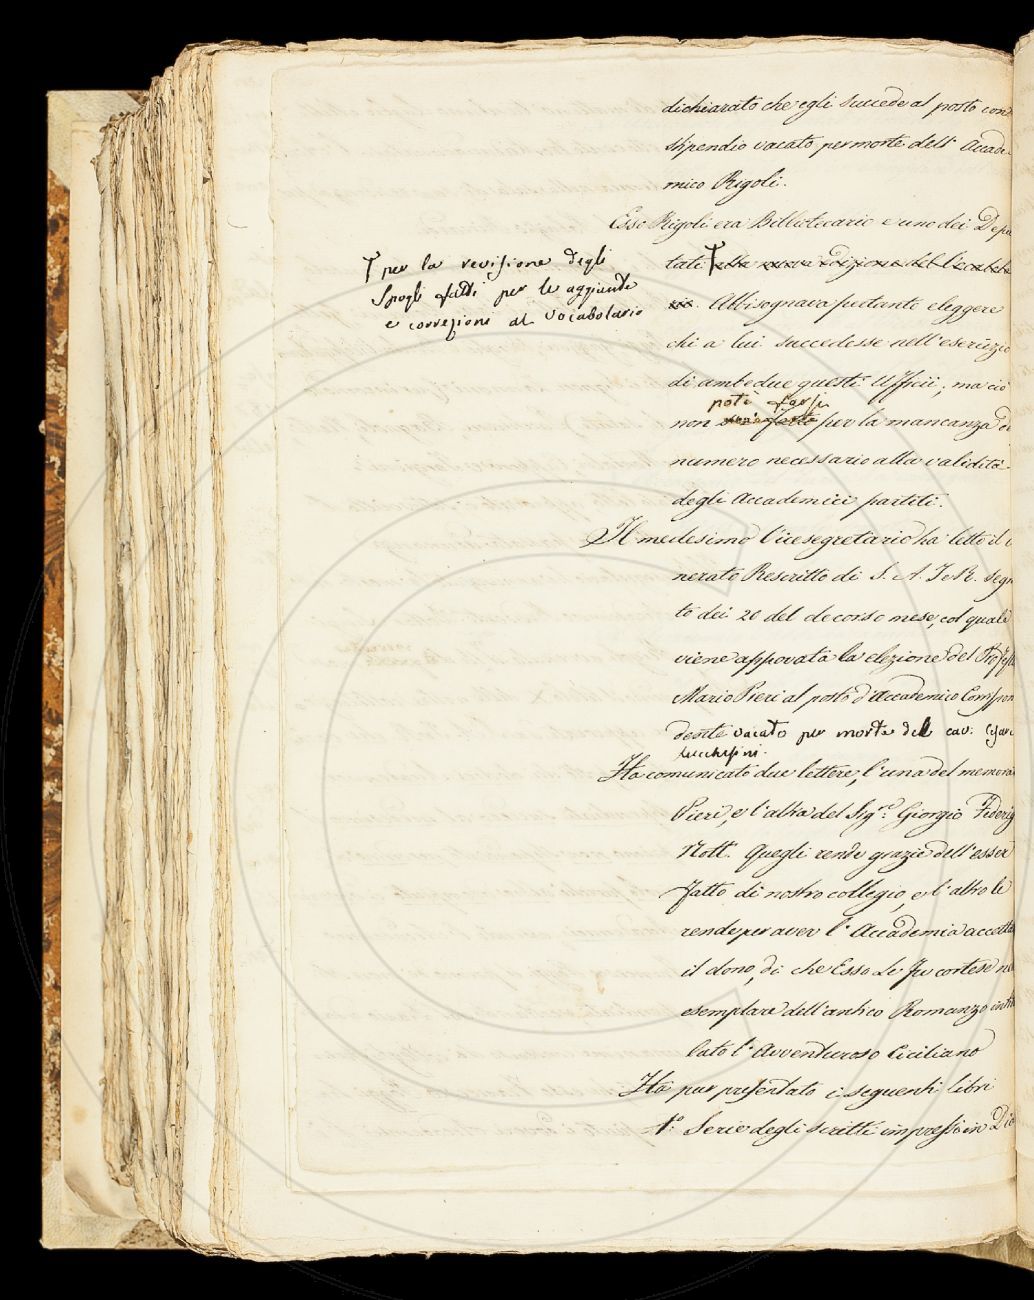 dichiarato che egli succede al posto con
stipendio vacato per morte dell' Accade-
mico Rigoli.
Esso Rigoli era Bibliotecario e uno dei Depu
tati alla nuova edizione del Vocabola
rio. Abbisognava pertanto eleggere
† per la revisione degli
Spogli fatti per le aggiunte
e correzioni al Vocabolario
chi a lui succedesse nell'esercizio
di ambedue questi Ufficii; ma ciò
potè farsi
non fatto per la mancanza di
numero necessario alla validità
degli Accademici partiti.
Il medesimo Vicesegretario ha letto il
nerato Rescritto di S. A. I. e R. segn
to dei 20 del decorso mese, col quale
viene approvata la elezione del Profess
Mario Pieri al posto d'Accademico Corrispon
dente vacato per morte del cav. Cesare
Lucchesini.
Ha comunicato due lettere, l'una del memora
Pieri, e l'altra del Sig.re Giorgio Federig
Nott. Quegli rende grazie dell'esser
fatto di nostro collegio, e l'altro le
rende per aver l'Accademia accetta
il dono, di che Esso Le fu cortese
esemplare dell'antico Romanzo intit
lato l'Avventuroso Ciciliano
Ha pur presentato i seguenti libri
1.° Serie degli scritti impressi in Dia